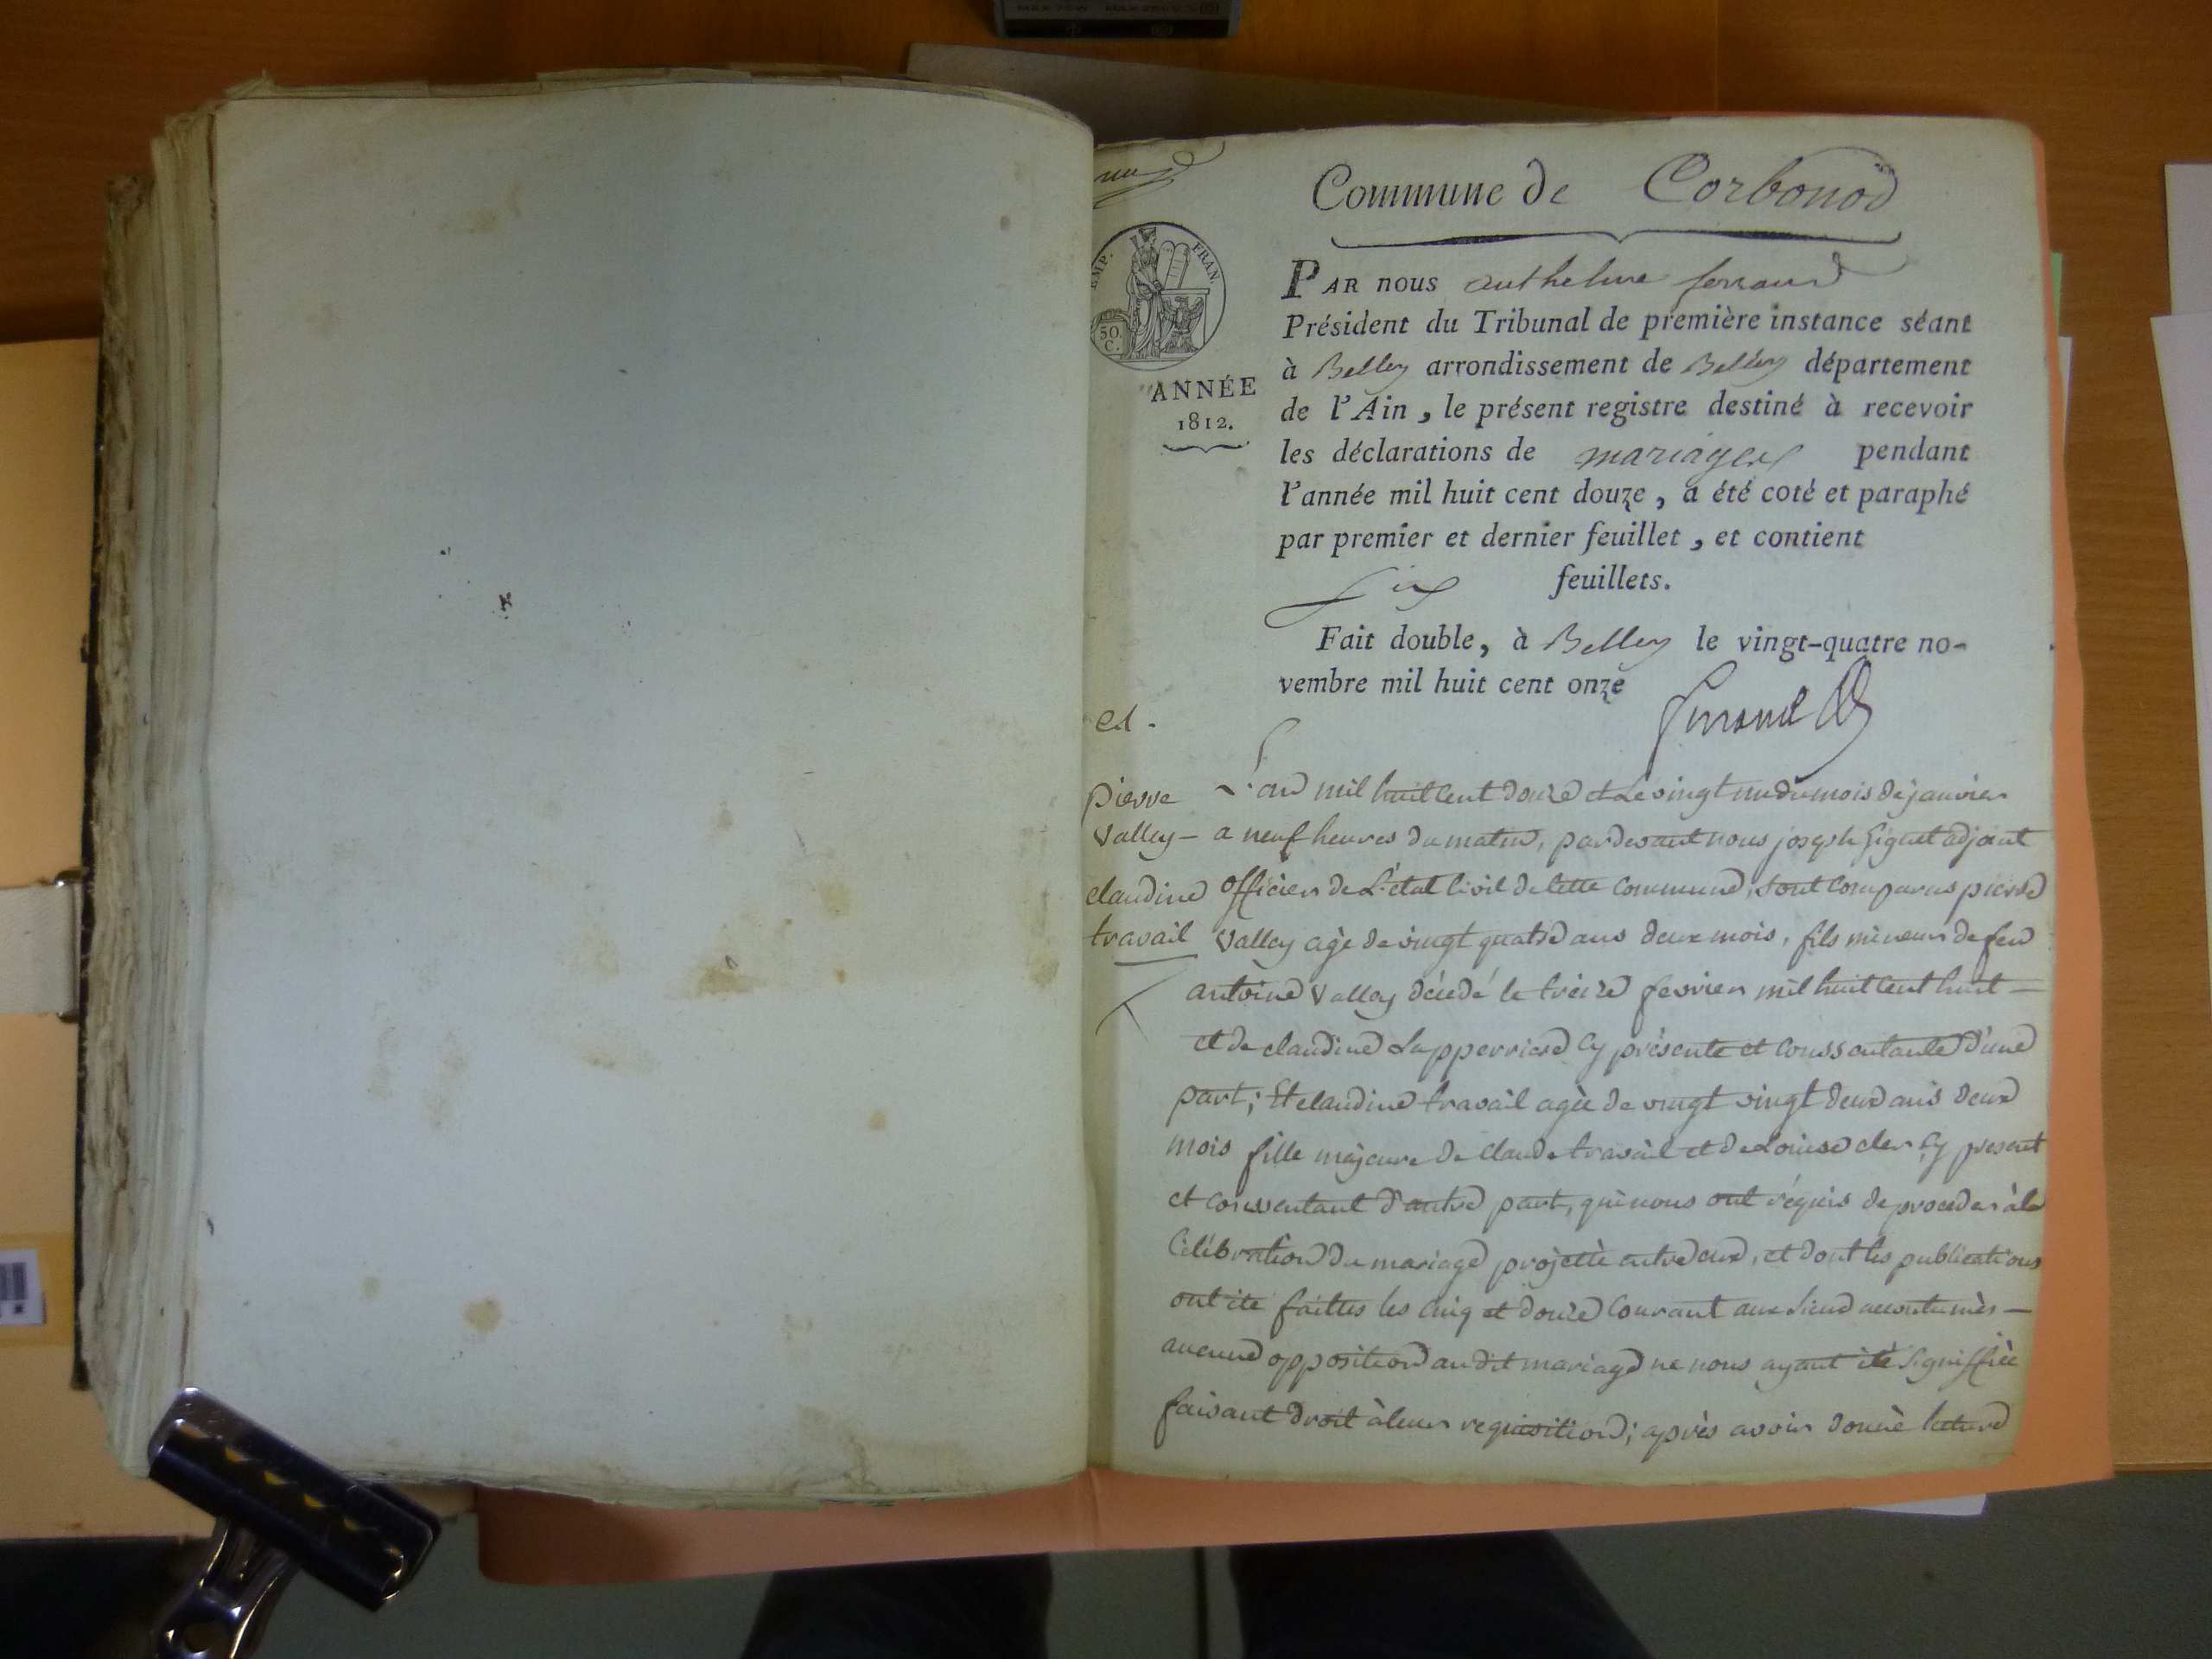 Commune de Corbonod
EMP. FRAN.
50.
C.
ANNÉE
1812.
PAR nous anthelme ferrand
Président du Tribunal de première instance séant
à Belley arrondissement de Belley département
de l'Ain, le présent registre destiné à recevoir
les déclarations de mariages pendant
l'année mil huit cent douze, a été coté et paraphé
par premier et dernier feuillet, et contient
six feuillets.
Fait double, à Belley le vingt-quatre no-
vembre mil huit cent onze
ferrand
Pierre
Valley —
claudine
travail
L'an mil huit cent douze et Le vingt un du mois de janvier
a neuf heures du matin, pardevant nous joseph Giguet adjoint
officier de L'état Civil de Cette Commune, sont comparus pierre
Valley agè de vingt quatre ans deux mois, fils mineur de feu
antoine Valley décedé le treize fevrier mil huit Cent huit —
et de claudine Lapperriere Cy présente et Conssentante d'une
part; Et claudine travail agèe de vingt vingt deux ans deux
mois fille majeure de Claude travail et de Louise cler Cy present
et conssentant d'autre part, qui nous ont réquis de proceder à la
Célébration du mariage projettè entre eux, et dont les publications
ont ité faittes les Cinq et douze Courant aux Lieux accoutumès —
aucune opposition audit mariage ne nous ayant ité signiffièe
faisant droit à leur requisition; après avoir donnè lecture